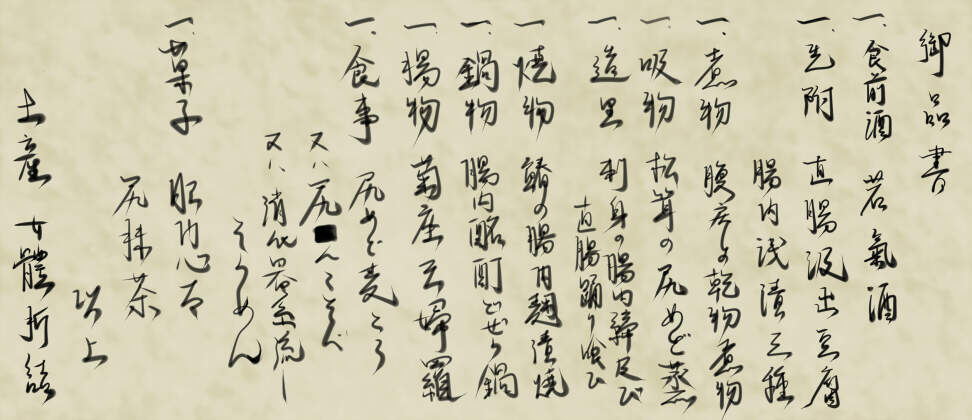 御品書
一、食前酒 若氣酒
一、先附 直腸汲出豆腐
腸内浅漬三種
一、煮物 腹戻り乾物煮物
一、吸物 松茸の尻めど蒸
一、造里 刺身の腸内締尻び
直腸踊り喰ひ
一、焼物 鰆の腸内麹漬焼
一、鍋物 腸内酩酊どぜう鍋
一、揚物 菊座天婦羅
一、食事 尻めど麦とろ
又ハ尻 んこそば
又ハ消化器系流し
そうめん
一、菓子 肛門心太
尻抹茶
以上
土産 女體折詰